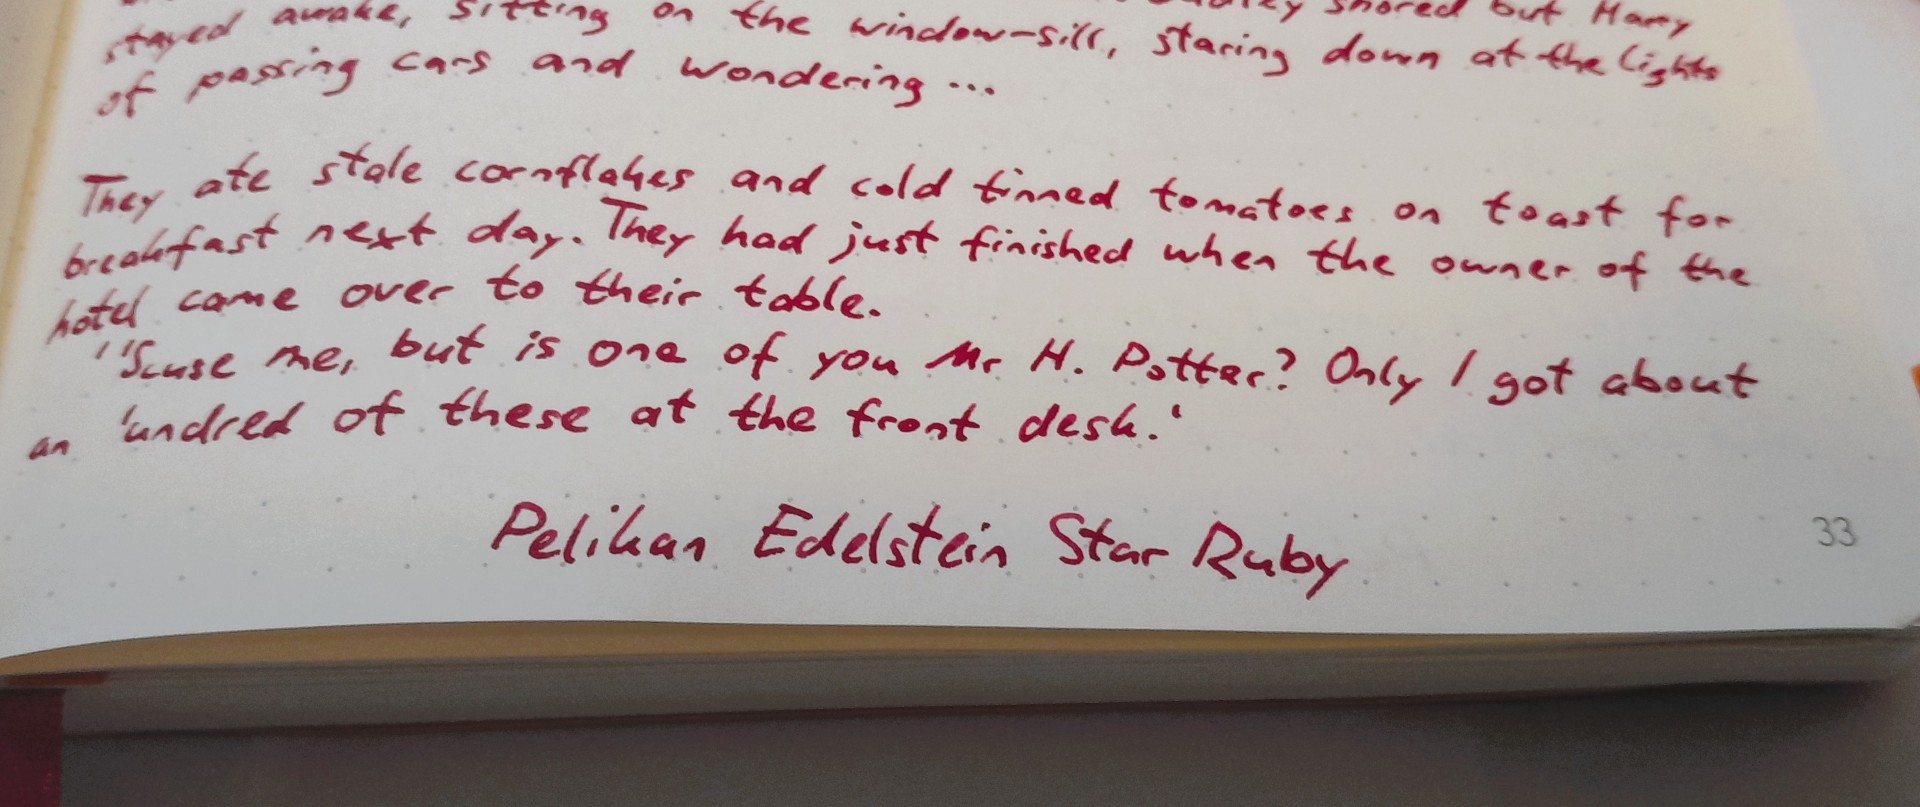 snored but Harry
stayed awake, sitting on the window-sill, staring down at the lights
of passing cars and wondering ...
They ate stale cornflakes and cold tinned tomatoes on toast for
breakfast next day. They had just finished when the owner of the
hotel came over to their table.
''Scuse me, but is one of you Mr H. Potter? Only I got about
an 'undred of these at the front desk.'
Pelikan Edelstein Star Ruby
33